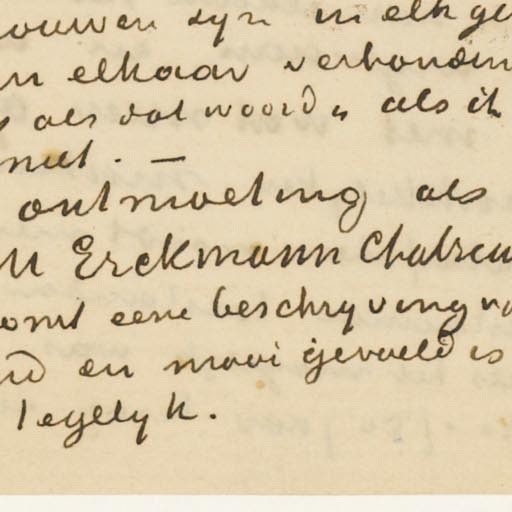 ouwen zyn in elk ge
n elkaar verbonden
als dat woord „ als ik
niet. —
ontmoeting als
n Erckmann Chatria
omt eene beschryving v
nd en mooi gevoeld is
legelyk.